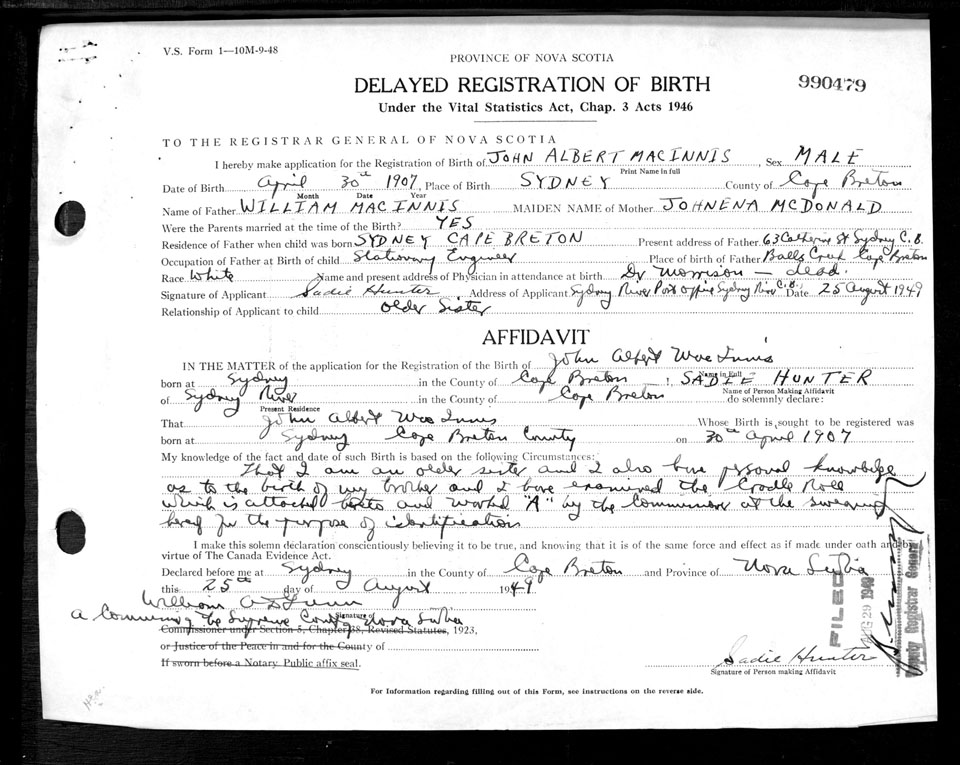 V.S. Form 1—10M-9-48
PROVINCE OF NOVA SCOTIA
DELAYED REGISTRATION OF BIRTH
990479
Under the Vital Statistics Act, Chap. 3 Acts 1946
TO THE REGISTRAR GENERAL OF NOVA SCOTIA
I hereby make application for the Registration of Birth of JOHN ALBERT MACINNIS Sex MALE
Print Name in full
Date of Birth April 30th 1907, Place of Birth SYDNEY County of Cape Breton
Month Date Year
Name of Father WILLIAM MACINNIS MAIDEN NAME of Mother JOHNENA MCDONALD
Were the Parents married at the time of the Birth? YES
Residence of Father when child was born SYDNEY CAPE BRETON Present address of Father 63 Catherine St Sydney C.B.
Occupation of Father at Birth of child Stationary Engineer Place of birth of Father Balls Creek Cape Breton
Race White Name and present address of Physician in attendance at birth Dr Morrison — dead.
Signature of Applicant Sadie Hunter Address of Applicant Sydney River Post Office Sydney River C.B. Date 25 August 1949
Relationship of Applicant to child older Sister
AFFIDAVIT
IN THE MATTER of the application for the Registration of the Birth of John Albert MacInnis
Name in Full
born at Sydney in the County of Cape Breton I, SADIE HUNTER
Name of Person Making Affidavit
of Sydney River in the County of Cape Breton do solemnly declare:
Present Residence
That John Albert MacInnis Whose Birth is sought to be registered was
born at Sydney Cape Breton County on 30th April 1907
My knowledge of the fact and date of such Birth is based on the following Circumstances:
That I am an older sister and I also have personal knowledge
as to the birth of my brother and I have examined the Cradle Roll
which is attached hereto and marked "A" by the Commissioner at the swearing
hereof for the purpose of identification
I make this solemn declaration conscientiously believing it to be true, and knowing that it is of the same force and effect as if made under oath and by
virtue of The Canada Evidence Act.
Declared before me at Sydney in the County of Cape Breton and Province of Nova Scotia
this 25th day of August 1949
William
Signature of
a Commissioner of the Supreme Court of Nova Scotia
Commissioner under Section 5, Chapter 38, Revised Statutes, 1923,
or Justice of the Peace in and for the County of
If sworn before a Notary Public affix seal.
FILED
AUG 29 1949
Deputy Registrar General
Sadie Hunter
Signature of Person making Affidavit
For Information regarding filling out of this Form, see instructions on the reverse side.